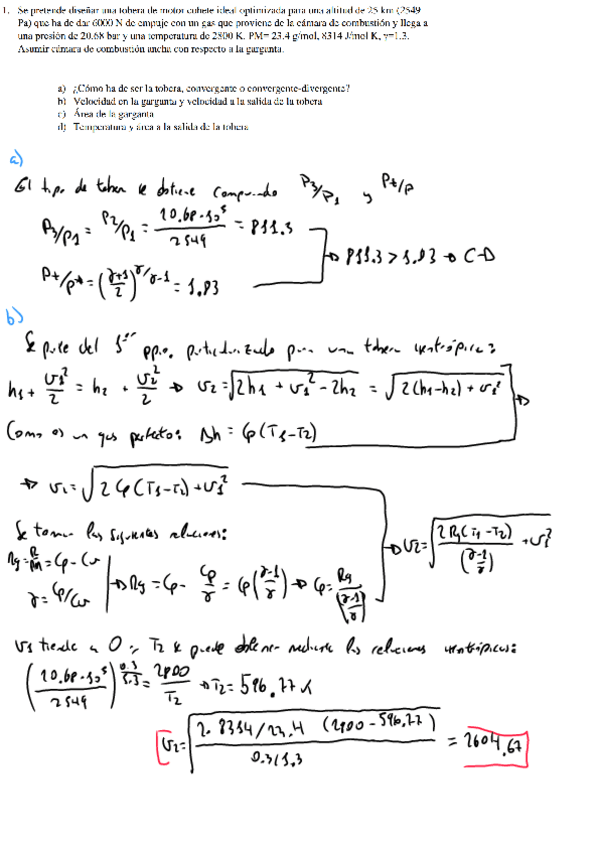 1. Se pretende diseñar una tobera de motor cohete ideal optimizada para una altitud de 25 km (2549
Pa) que ha de dar 6000 N de empuje con un gas que proviene de la cámara de combustión y llega a
una presión de 20.68 bar y una temperatura de 2800 K. PM= 23.4 g/mol, 8314 J/mol K, γ=1.3.
Asumir cámara de combustión ancha con respecto a la garganta.
a) ¿Cómo ha de ser la tobera, convergente o convergente-divergente?
b) Velocidad en la garganta y velocidad a la salida de la tobera
c) Área de la garganta
d) Temperatura y área a la salida de la tobera
a)
El tipo de tobera se obtiene comparando P3/P1 y Pt/P
P3/P1 = P2/P1 = 20.68·10⁵ / 2549 = 811.3
Pt/P* = (γ+1 / 2)^γ/γ-1 = 1.83
→ 811.3 > 1.83 → C-D
b)
Se parte del 1er ppio. particularizando para una tobera isentrópica:
h1 + v1²/2 = h2 + v2²/2 → v2 = √(2h1 + v1² - 2h2) = √(2(h1-h2) + v1²)
Como es un gas perfecto: Δh = Cp(T1-T2)
→ v2 = √(2 Cp (T1-T2) + v1²)
Se toman las siguientes relaciones:
Rg = R/PM = Cp - Cv
γ = Cp/Cv
→ Rg = Cp - Cp/γ = Cp(γ-1/γ) → Cp = Rg/(γ-1/γ)
→ v2 = √(2 Rg (T1-T2) / (γ-1/γ) + v1²)
v1 tiende a 0 y T2 se puede obtener mediante las relaciones isentrópicas:
(20.68·10⁵ / 2549)^0.3/1.3 = 2800/T2 → T2 = 596.77 K
v2 = √(2 · 8314/23.4 (2800 - 596.77) / 0.3/1.3) = 2604.67